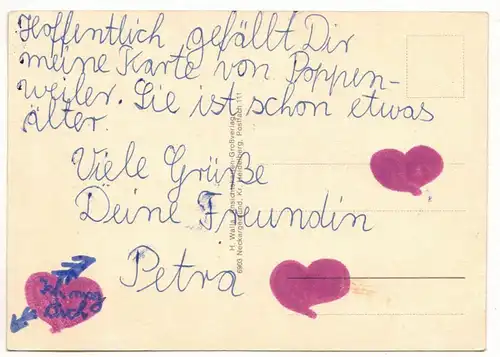 Hoffentlich gefällt Dir
meine Karte von Poppen-
weiler. Sie ist schon etwas
älter.
Viele Grüße
Deine Freundin
Petra
Ich mag
Dich
6903 Neckargemünd, Kr. Heidelberg, Postfach 111